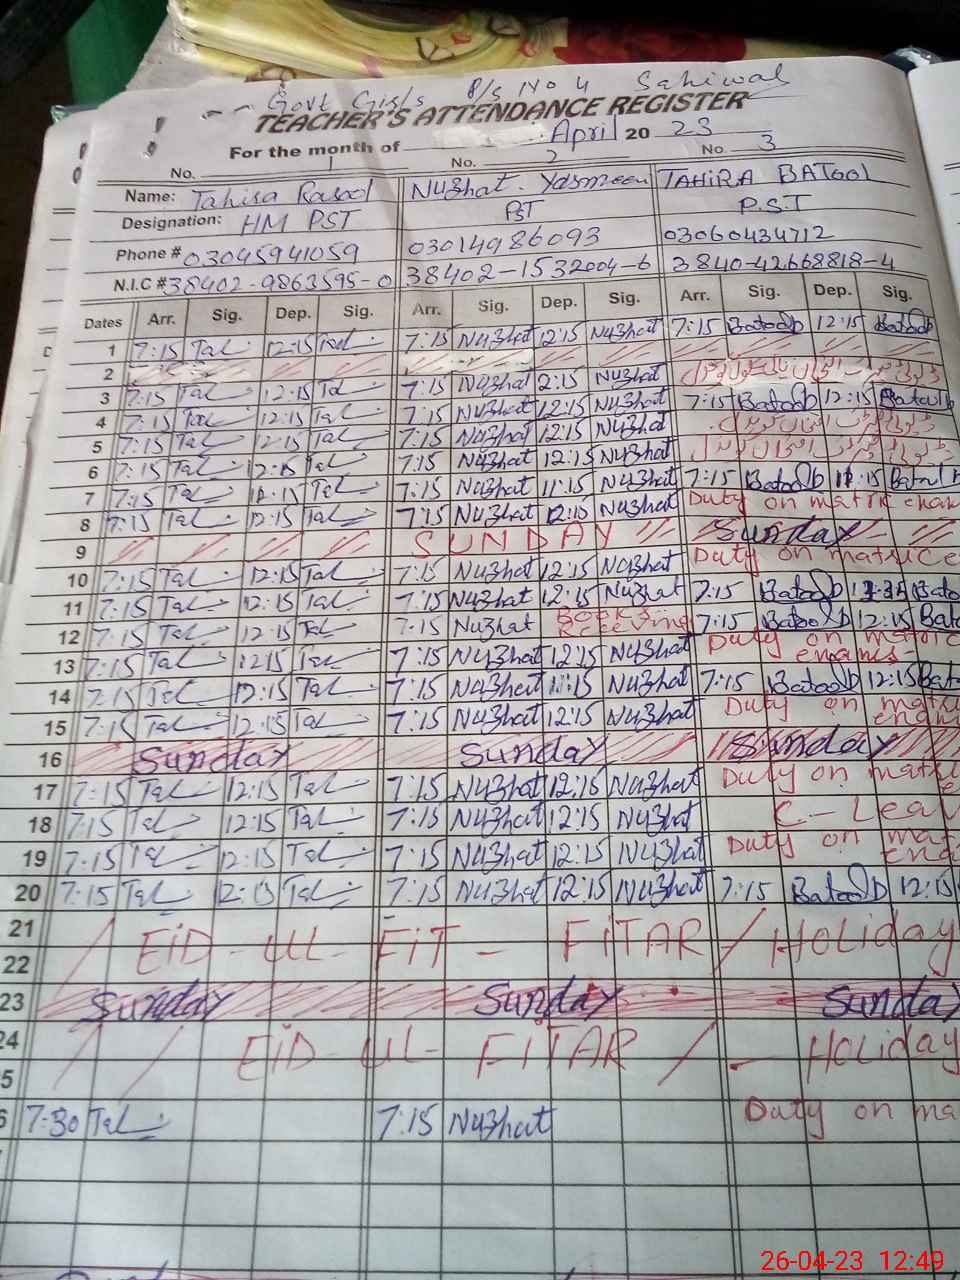 Govt Girls P/S No 4 Sahiwal
TEACHER'S ATTENDANCE REGISTER
For the month of April 20 23
No. 1 No. 2 No. 3
Name: Tahira Rasool Nuzhat. Yasmeen TAHiRA BATool
Designation: HM PST PST P.S.T
Phone # 03045941059 03014986093 03060434712
N.I.C # 38402-9863595-0 38402-1532004-6 3840-42668818-4
Dates Arr. Sig. Dep. Sig. Arr. Sig. Dep. Sig. Arr. Sig. Dep. Sig.
1 7:15 Tal 12:15 Tal 7:15 Nuzhat 12:15 Nuzhat 7:15 Batool 12:15 Batool
2
3 7:15 Tal 12:15 Tal 7:15 Nuzhat 2:15 Nuzhat
4 7:15 Tal 12:15 Tal 7:15 Nuzhat 12:15 Nuzhat 7:15 Batool 12:15 Batool
5 7:15 Tal 12:15 Tal 7:15 Nuzhat 12:15 Nuzhat
6 7:15 Tal 12:15 Tal 7:15 Nuzhat 12:15 Nuzhat
7 7:15 Tal 11:15 Tal 7:15 Nuzhat 11:15 Nuzhat 7:15 Batool 11:15 Batool
8 7:15 Tal 12:15 Tal 7:15 Nuzhat 12:15 Nuzhat Duty on matric
9 SUNDAY Sunday
10 7:15 Tal 12:15 Tal 7:15 Nuzhat 12:15 Nuzhat Duty on matric
11 7:15 Tal 12:15 Tal 7:15 Nuzhat 12:15 Nuzhat 7:15 Batool Bato
12 7:15 Tal 12:15 Tal 7:15 Nuzhat Books Receiving 7:15 Batool 12:15 Bato
13 7:15 Tal 12:15 Tal 7:15 Nuzhat 12:15 Nuzhat Duty on matric enams
14 7:15 Tal 12:15 Tal 7:15 Nuzhat 11:15 Nuzhat 7:15 Batool 12:15 Bato
15 7:15 Tal 12:15 Tal 7:15 Nuzhat 12:15 Nuzhat Duty on matri enam
16 Sunday Sunday Sunday
17 7:15 Tal 12:15 Tal 7:15 Nuzhat 12:15 Nuzhat Duty on matri
18 7:15 Tal 12:15 Tal 7:15 Nuzhat 12:15 Nuzhat C-Leav
19 7:15 Tal 12:15 Tal 7:15 Nuzhat 12:15 Nuzhat Duty on mat ena
20 7:15 Tal 12:15 Tal 7:15 Nuzhat 12:15 Nuzhat 7:15 Batool 12:15
21
EiD-UL-FiT-FiTAR/HOLiday
22
23 Sunday Sunday Sunday
24 EiD-UL-FiTAR/-HOLiday
5
6 7:30 Tal 7:15 Nuzhat Duty on ma
26-04-23 12:49